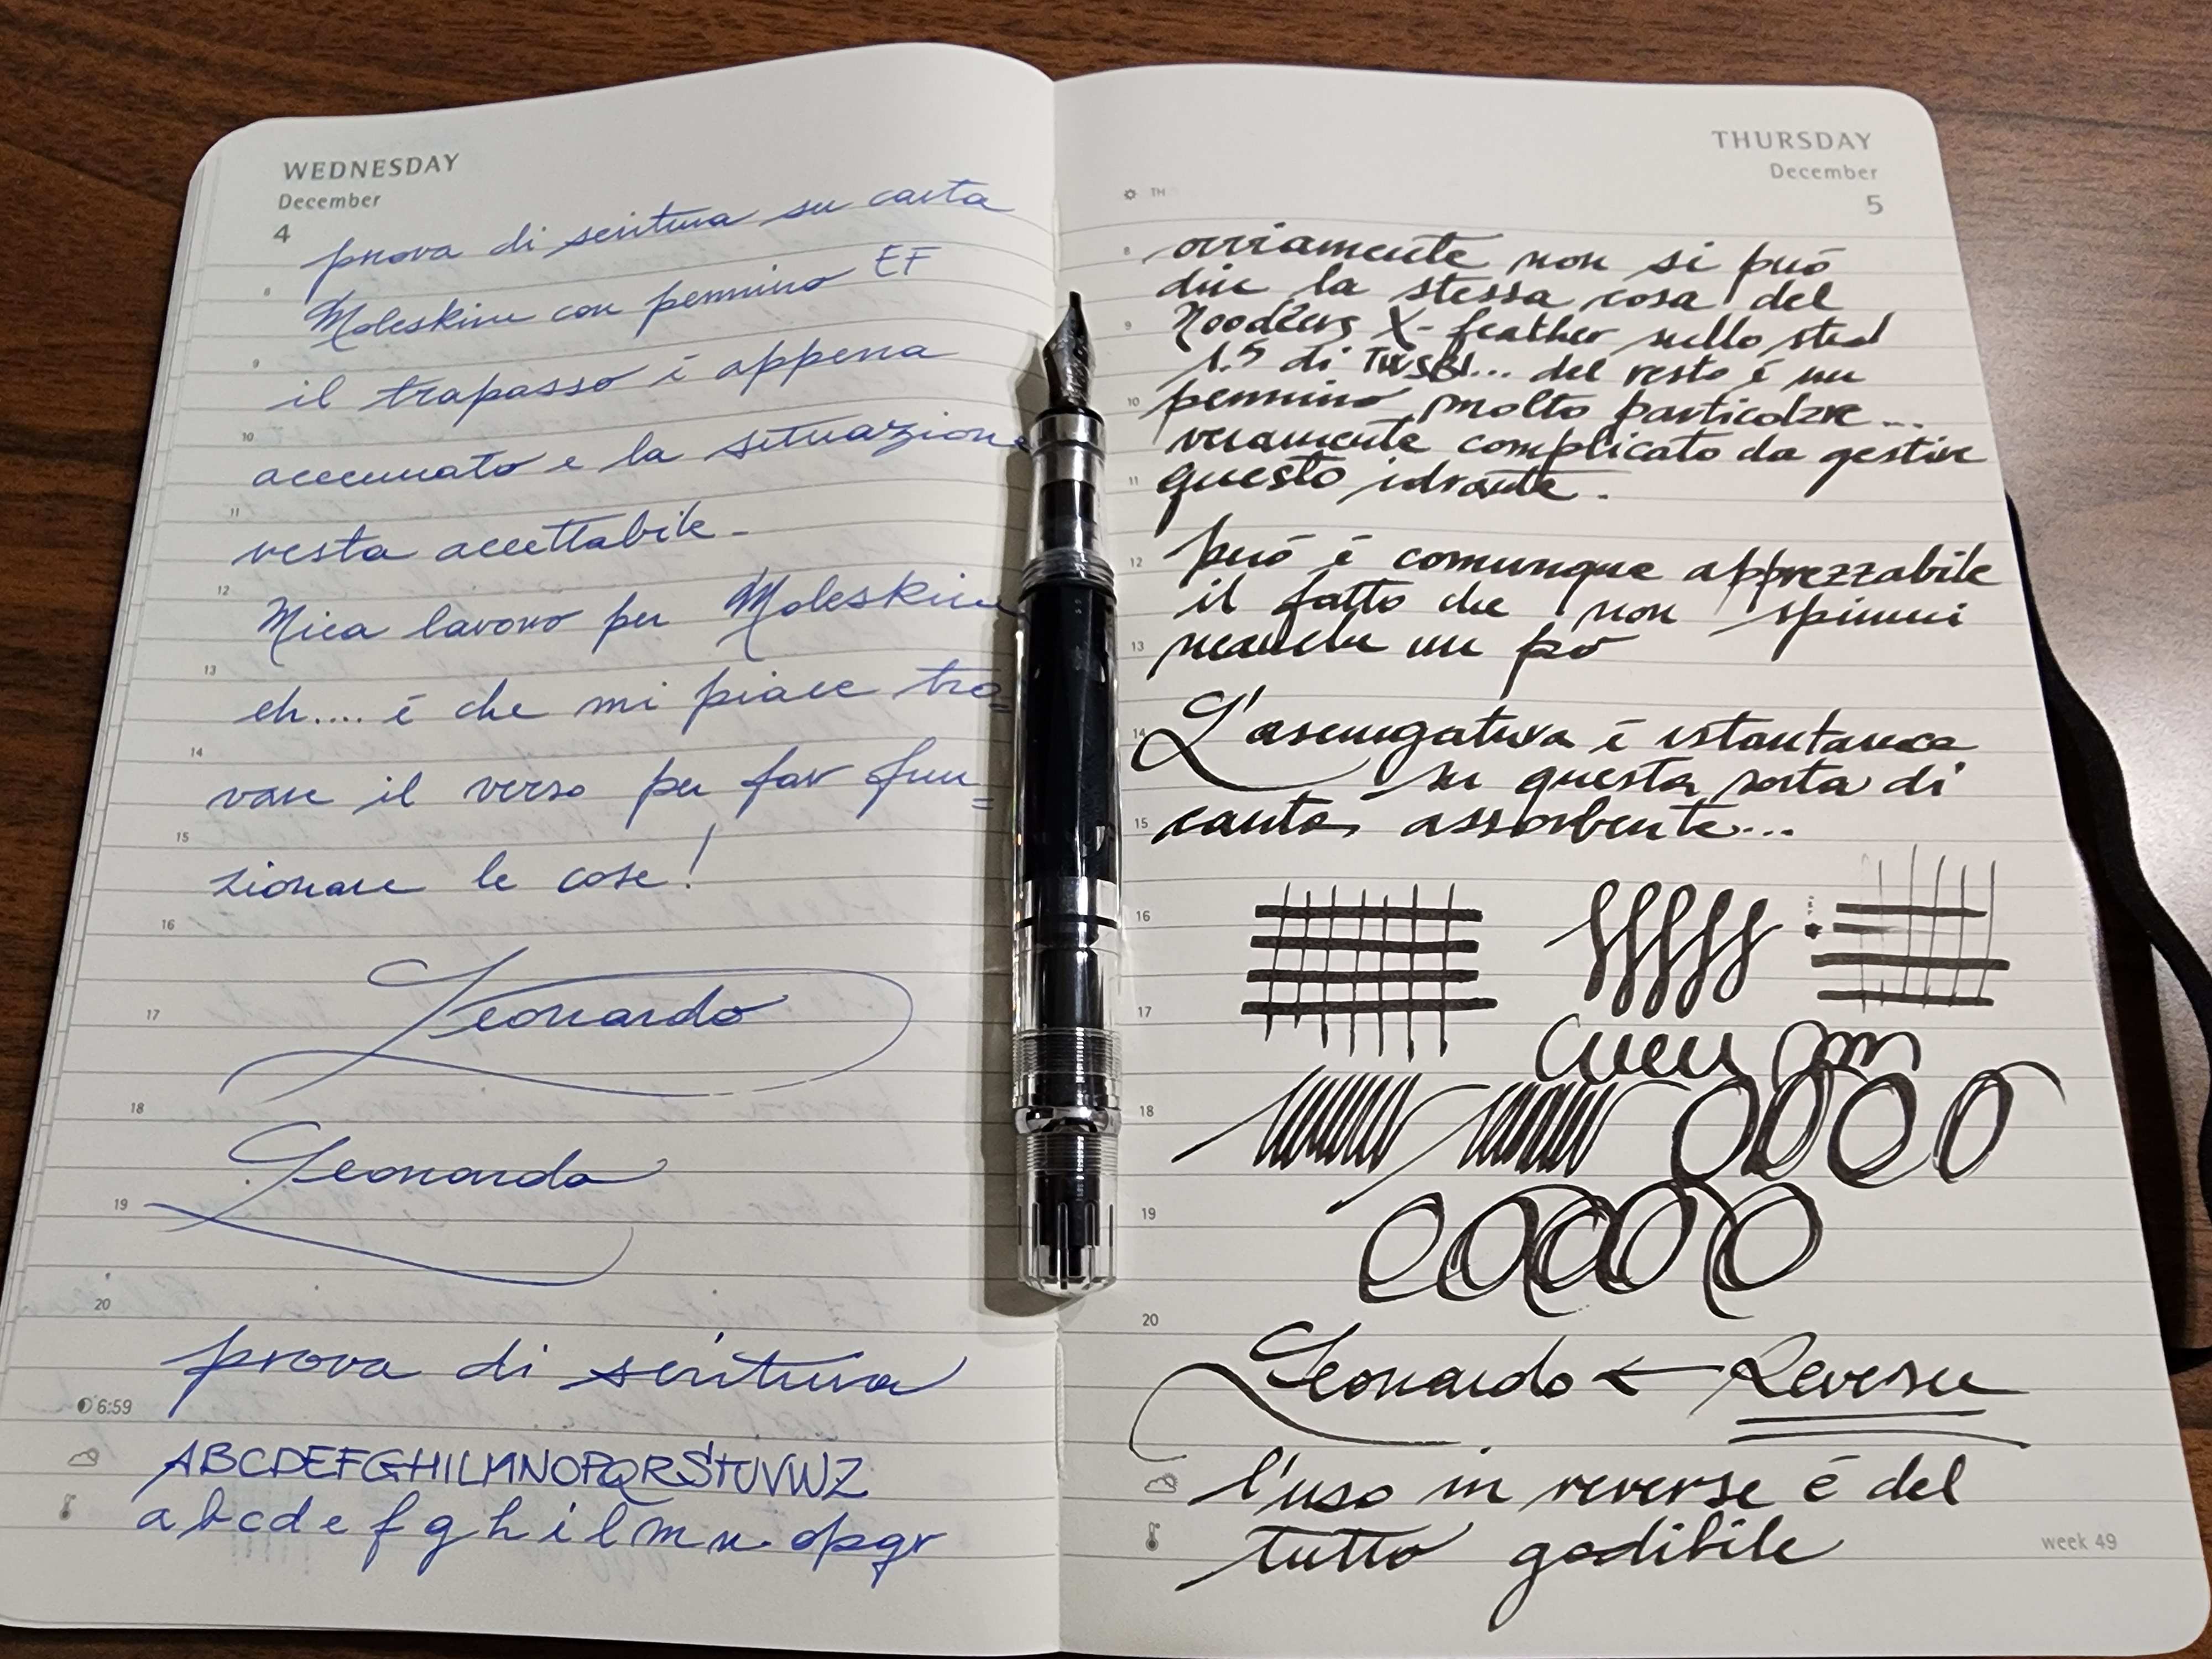 WEDNESDAY
December
4
prova di scrittura su carta
8
Moleskine con pennino EF
9
il trapasso è appena
10
accennato e la situazione
11
resta accettabile.
12
Mica lavoro per Moleskine
13
eh.... è che mi piace tro=
14
vare il verso per far fun=
15
zionare le cose!
16
Leonardo
17
18
Leonardo
19
20
prova di scrittura
6:59
ABCDEFGHILMNOPQRSTUVWZ
a b c d e f g h i l m n o p q r
THURSDAY
December
5
TH
8
ovviamente non si può
dire la stessa cosa del
9
Noodlers X-feather sullo stub
1.5 di TWSBI... del resto è un
10
pennino molto particolare...
veramente complicato da gestire
11
questo idrante.
12
però è comunque apprezzabile
il fatto che non spiumi
13
neanche un pò
14
L'asciugatura è istantanea
su questa sorta di
15
carta assorbente...
16
17
18
19
20
Leonardo ← Reverse
l'uso in reverse è del
tutto godibile
week 49